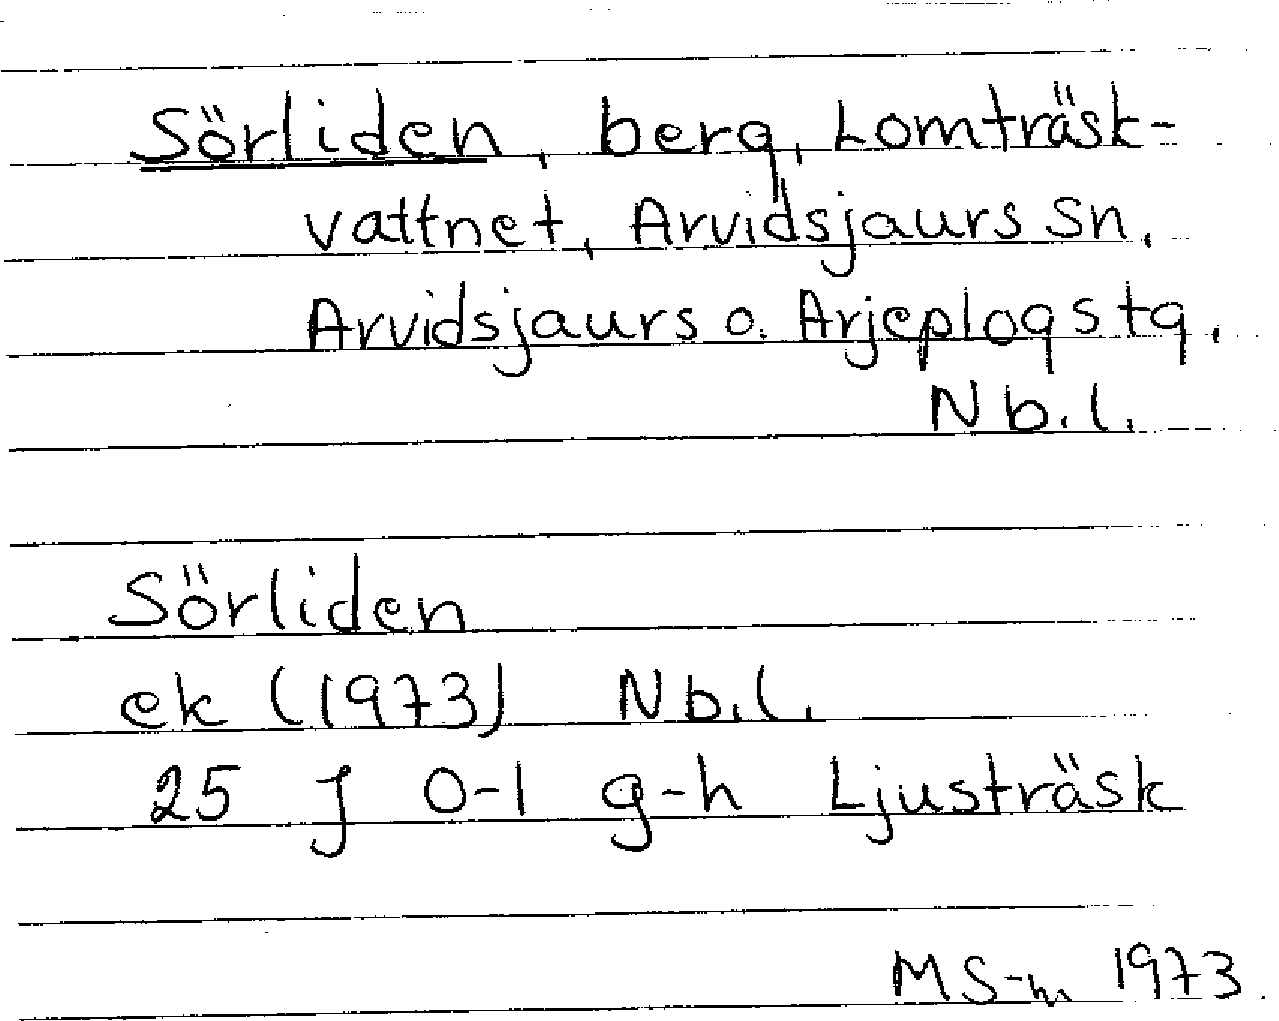 Sörliden, berg, Lomträsk-
vattnet, Arvidsjaurs sn,
Arvidsjaurs o. Arjeplogs tg.
Nb.l.
Sörliden
ek (1973) Nb.l.
25 J 0-1 g-h Ljusträsk
MS-m 1973.